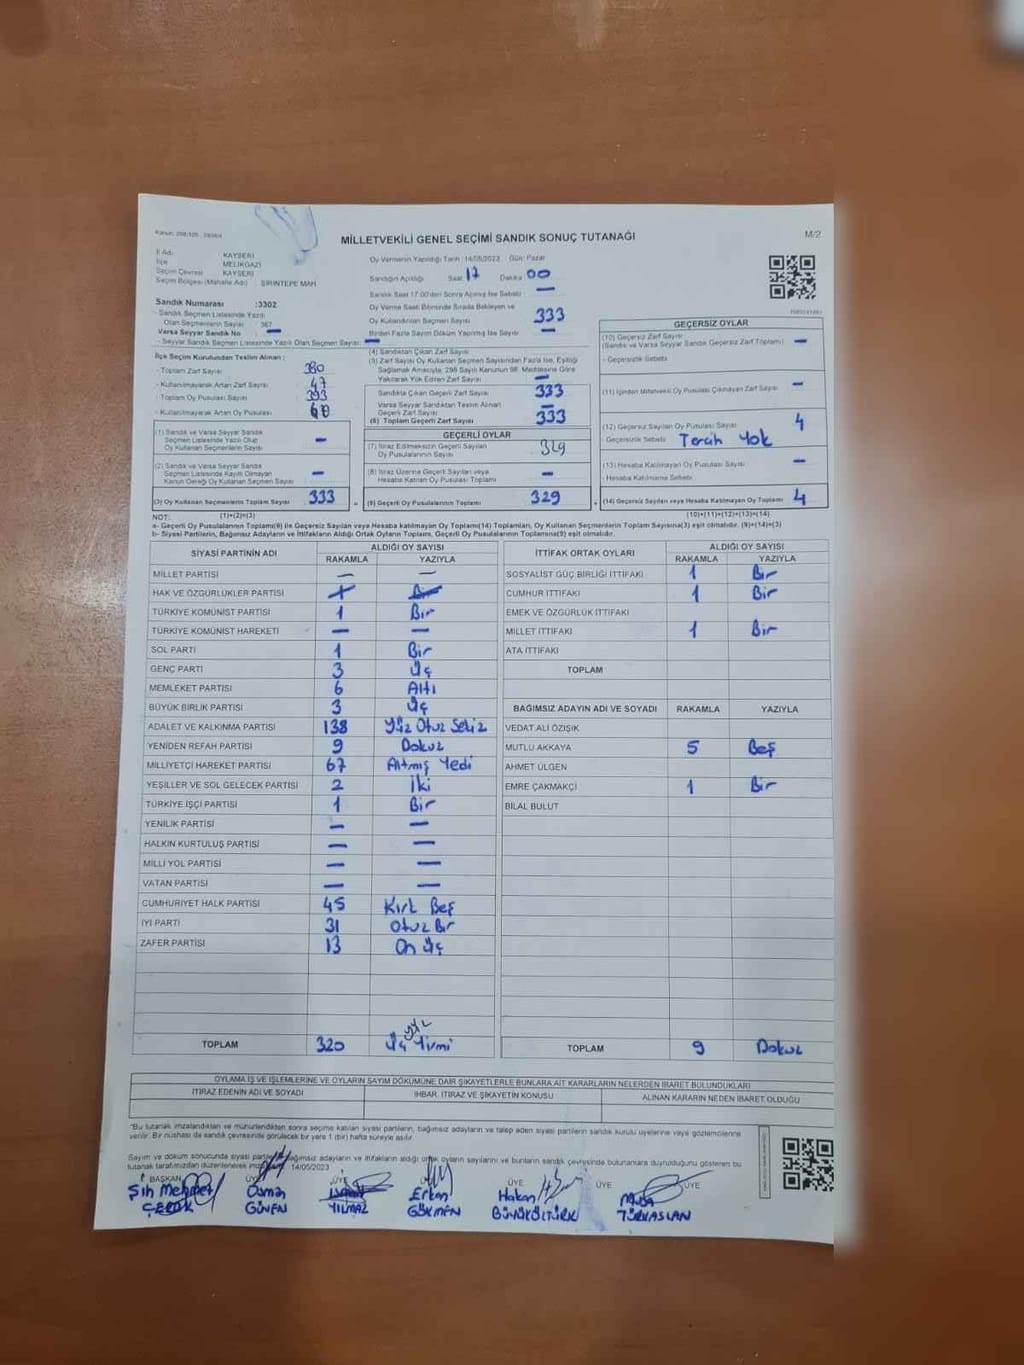 MİLLETVEKİLİ GENEL SEÇİMİ SANDIK SONUÇ TUTANAĞI
M/2
İl Adı KAYSERİ
İlçe MELİKGAZİ
Seçim Çevresi KAYSERİ
Seçim Bölgesi (Mahalle Adı) ŞİRİNTEPE MAH
Oy Vermenin Yapıldığı Tarih :14/05/2023 Gün: Pazar
Sandığın Açıldığı Saat 17 Dakika 00
Sandık Numarası :3302
- Sandık Seçmen Listesinde Yazılı
Olan Seçmenlerin Sayısı 367
Varsa Seyyar Sandık No —
- Seyyar Sandık Seçmen Listesinde Yazılı Olan Seçmen Sayısı: —
Sandık Saat 17.00'den Sonra Açılmış İse Sebebi —
Oy Verme Saati Bitiminde Sırada Bekleyen ve
Oy Kullandırılan Seçmen Sayısı 333
Birden Fazla Sayım Döküm Yapılmış İse Sayısı —
İlçe Seçim Kurulundan Teslim Alınan :
- Toplam Zarf Sayısı 380
- Kullanılmayarak Artan Zarf Sayısı 47
- Toplam Oy Pusulası 393
- Kullanılmayarak Artan Oy Pusulası
(1) Sandık ve Varsa Seyyar Sandık
Seçmen Listesinde Yazılı Olup
Oy Kullanan Seçmenlerin Sayısı —
(2) Sandık ve Varsa Seyyar Sandık
Seçmen Listesinde Kayıtlı Olmayan
Kanun Gereği Oy Kullanan Seçmen Sayısı —
(3) Oy Kullanan Seçmenlerin Toplam Sayısı 333
(1)+(2)=(3)
(4) Sandıktan Çıkan Zarf Sayısı
(5) Zarf Sayısı Oy Kullanan Seçmen Sayısından Fazla İse, Eşitliği
Sağlamak Amacıyla, 298 Sayılı Kanunun 98. Maddesine Göre
Yakılarak Yok Edilen Zarf Sayısı —
Sandıkta Çıkan Geçerli Zarf Sayısı 333
Varsa Seyyar Sandıktan Teslim Alınan
Geçerli Zarf Sayısı —
(6) Toplam Geçerli Zarf Sayısı 333
GEÇERLİ OYLAR
(7) İtiraz Edilmeksizin Geçerli Sayılan
Oy Pusulalarının Sayısı 329
(8) İtiraz Üzerine Geçerli Sayılan veya
Hesaba Katılan Oy Pusulası Sayısı —
(9) Geçerli Oy Pusulalarının Toplamı 329
GEÇERSİZ OYLAR
(10) Geçersiz Zarf Sayısı
(Sandık ve Varsa Seyyar Sandık Geçersiz Zarf Toplamı) —
- Geçersizlik Sebebi
(11) İçinden Milletvekili Oy Pusulası Çıkmayan Zarf Sayısı —
(12) Geçersiz Sayılan Oy Pusulası Sayısı 4
- Geçersizlik Sebebi Tercih Yok
(13) Hesaba Katılmayan Oy Pusulası Sayısı —
- Hesaba Katılmama Sebebi
(14) Geçersiz Sayılan veya Hesaba Katılmayan Oy Toplamı 4
(10)+(11)+(12)+(13)=(14)
NOT:
a- Geçerli Oy Pusulaları Toplamı(9) ile Geçersiz Sayılan veya Hesaba katılmayan Oy Toplamı(14) Toplamları, Oy Kullanan Seçmenlerin Toplam Sayısına(3) eşit olmalıdır. (9)+(14)=(3)
b- Siyasi Partilerin, Bağımsız Adayların ve İttifakların Aldığı Ortak Oyların Toplamı, Geçerli Oy Pusulalarının Toplamına(9) eşit olmalıdır.
SİYASİ PARTİNİN ADI ALDIĞI OY SAYISI
RAKAMLA YAZIYLA
MİLLET PARTİSİ — —
HAK VE ÖZGÜRLÜKLER PARTİSİ
TÜRKİYE KOMÜNİST PARTİSİ 1 Bir
TÜRKİYE KOMÜNİST HAREKETİ — —
SOL PARTİ 1 Bir
GENÇ PARTİ 3 Üç
MEMLEKET PARTİSİ 6 Altı
BÜYÜK BİRLİK PARTİSİ 3 Üç
ADALET VE KALKINMA PARTİSİ 138 Yüz Otuz Sekiz
YENİDEN REFAH PARTİSİ 9 Dokuz
MİLLİYETÇİ HAREKET PARTİSİ 67 Altmış Yedi
YEŞİLLER VE SOL GELECEK PARTİSİ 2 İki
TÜRKİYE İŞÇİ PARTİSİ 1 Bir
YENİLİK PARTİSİ — —
HALKIN KURTULUŞ PARTİSİ — —
MİLLİ YOL PARTİSİ — —
VATAN PARTİSİ — —
CUMHURİYET HALK PARTİSİ 45 Kırk Beş
İYİ PARTİ 31 Otuz Bir
ZAFER PARTİSİ 13 On Üç
TOPLAM 320 Üç yüz Yirmi
İTTİFAK ORTAK OYLARI ALDIĞI OY SAYISI
RAKAMLA YAZIYLA
SOSYALİST GÜÇ BİRLİĞİ İTTİFAKI 1 Bir
CUMHUR İTTİFAKI 1 Bir
EMEK VE ÖZGÜRLÜK İTTİFAKI
MİLLET İTTİFAKI 1 Bir
ATA İTTİFAKI
TOPLAM
BAĞIMSIZ ADAYIN ADI VE SOYADI RAKAMLA YAZIYLA
VEDAT ALİ ÖZIŞIK
MUTLU AKKAYA 5 Beş
AHMET ÜLGEN
EMRE ÇAKMAKÇİ 1 Bir
BİLAL BULUT
TOPLAM 9 Dokuz
OYLAMA İŞ VE İŞLEMLERİNE VE OYLARIN SAYIM DÖKÜMÜNE DAİR ŞİKAYETLERLE BUNLARA AİT KARARLARIN NELERDEN İBARET BULUNDUKLARI
İTİRAZ EDENİN ADI VE SOYADI İHBAR, İTİRAZ VE ŞİKAYETİN KONUSU ALINAN KARARIN NEDEN İBARET OLDUĞU
*Bu tutanak imzalandıktan ve mühürlendikten sonra seçime katılan siyasi partilerin, bağımsız adayların ve talep eden siyasi partilerin sandık kurulu üyelerine veya gözlemcilerine
verilir. Bir nüshası da sandık çevresinde görülecek bir yere 1 (bir) hafta süreyle asılır.
Sayım ve döküm sonucunda siyasi partilerin, bağımsız adayların ve ittifakların aldığı ortak oyların sayılarını ve bunların sandık çevresinde bulunanlara duyurulduğunu gösteren bu
tutanak tarafımızdan düzenlenerek 14/05/2023
BAŞKAN ÜYE ÜYE ÜYE ÜYE ÜYE
Şıh Mehmet Osman Erkan Hakan Musa
GÜVEN YILMAZ GÖKMEN BÜYÜKÖLTÜRK TÜRKASLAN